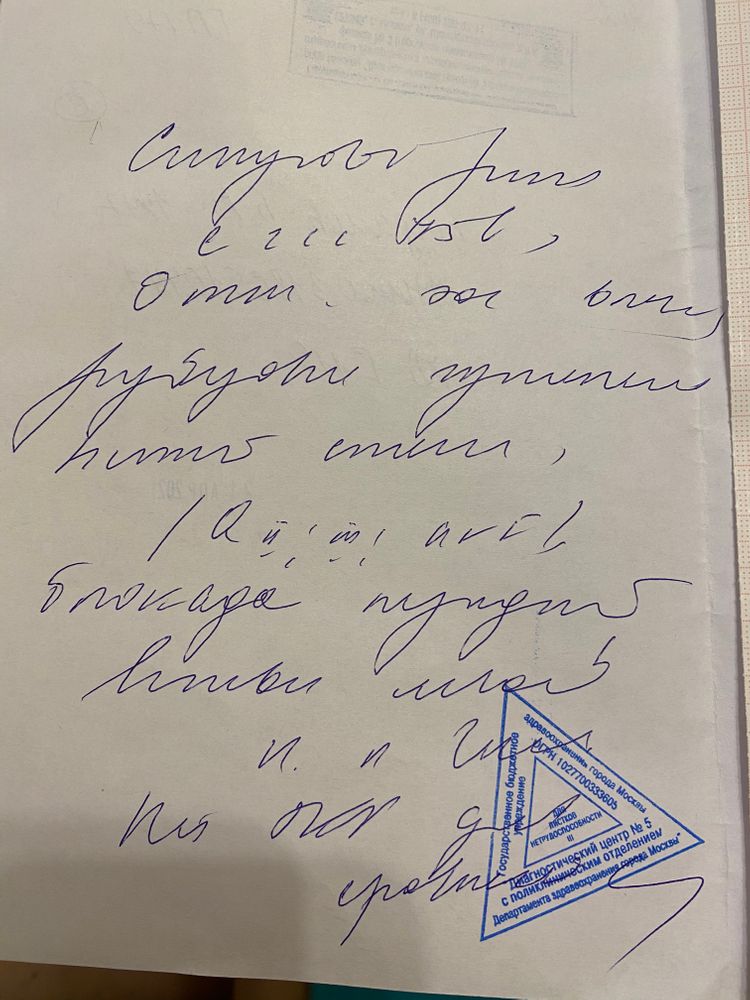 Синусовый ритм
с ЧСС 75,
Откл. эос влево,
рубцовые изменения
нижней стенки,
(Q II, III, avF)
блокада передней
ветви левой
н. п Гиса
ЭКГ для
сравнения
Государственное бюджетное
учреждение
здравоохранения города Москвы
ОГРН 1027700333605
для
листков
нетрудоспособности
III
Диагностический центр № 5
с поликлиническим отделением
Департамента здравоохранения города Москвы"